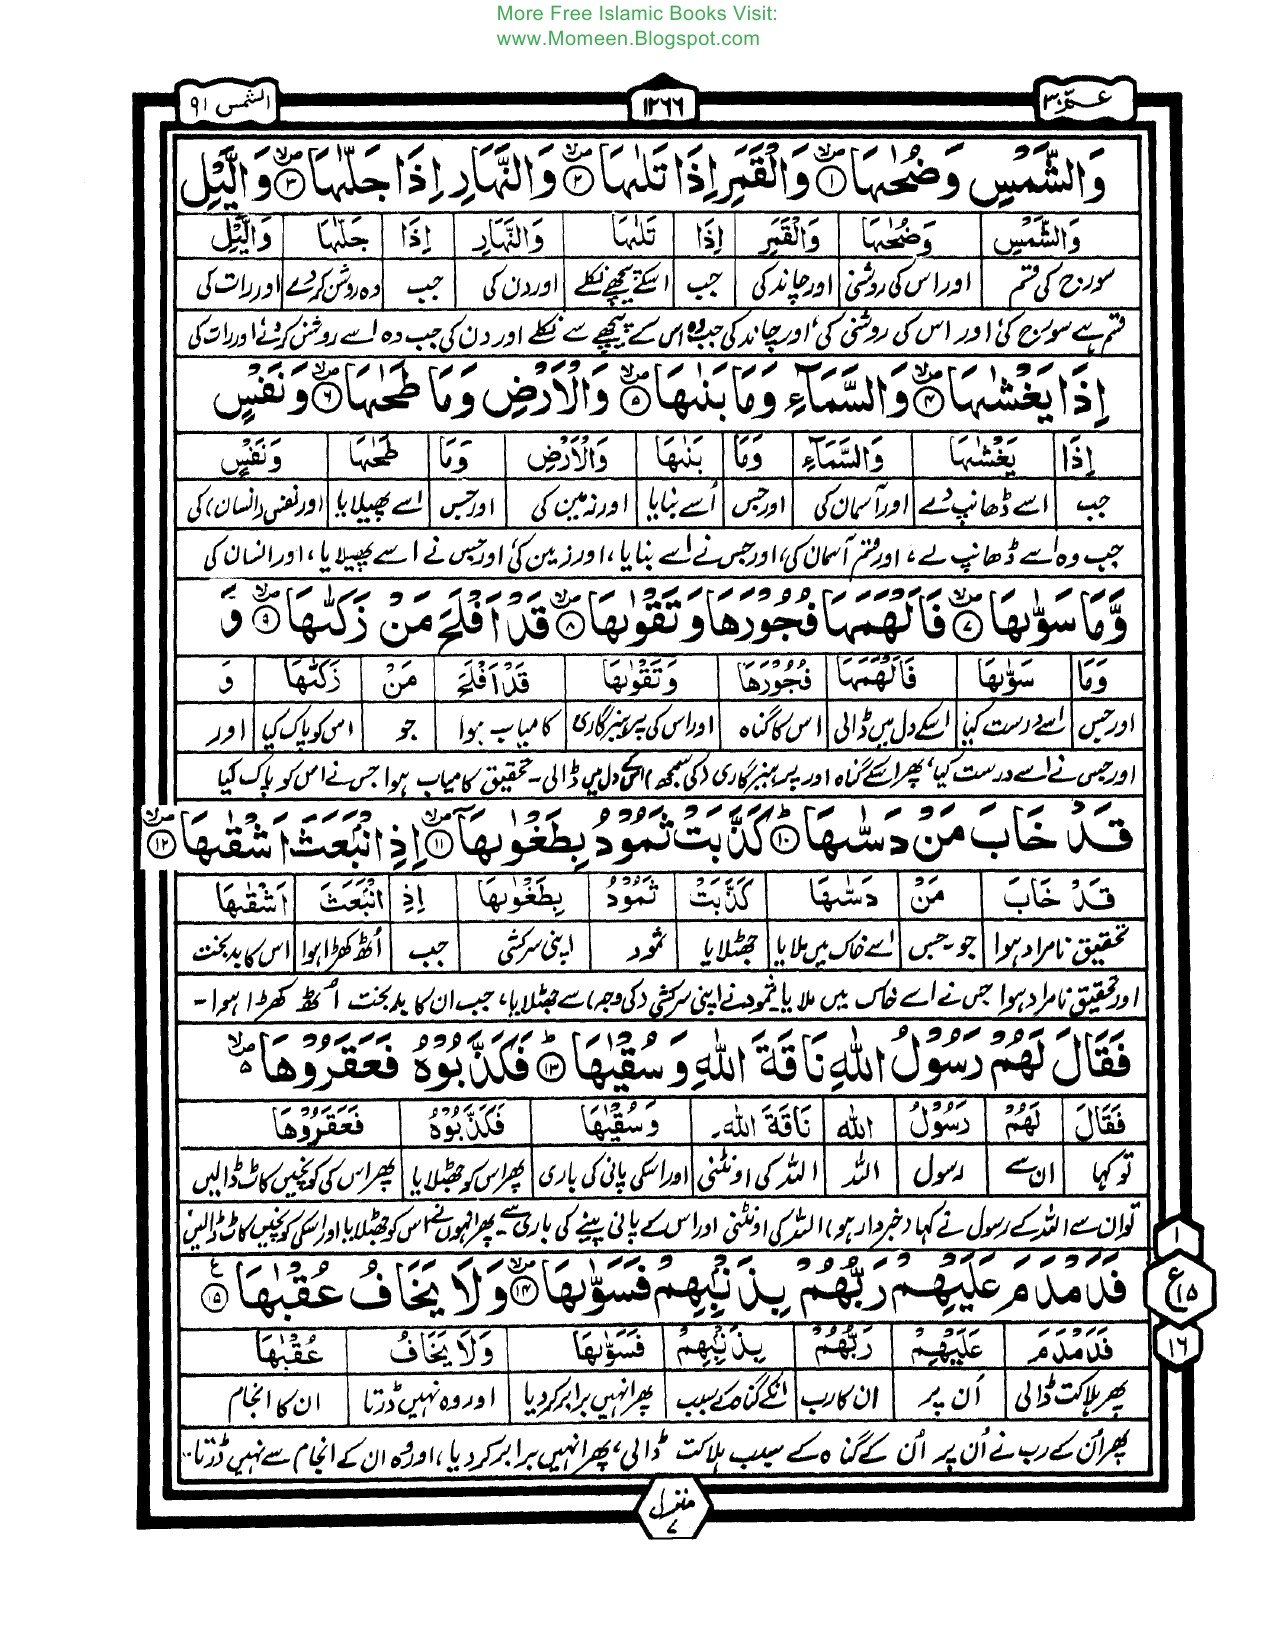 More Free Islamic Books Visit:
www.Momeen.Blogspot.com
عـم ٣٠
١٢٦٦
الشمس ٩١
وَالشَّمْسِ وَضُحٰىهَا ۝١ وَالْقَمَرِ اِذَا تَلٰىهَا ۝٢ وَالنَّهَارِ اِذَا جَلّٰىهَا ۝٣ وَالَّيْلِ
وَالشَّمْسِ وَضُحٰىهَا وَالْقَمَرِ اِذَا تَلٰىهَا وَالنَّهَارِ اِذَا جَلّٰىهَا وَالَّيْلِ
سورج کی قسم اور اس کی روشنی اور چاند کی جب اسکے پیچھے نکلے اور دن کی جب وہ روشن کردے اور رات کی
قسم ہے سورج کی، اور اس کی روشنی کی، اور چاند کی جب وہ اس کے پیچھے سے نکلے اور دن کی جب وہ اسے روشن کردے، اور رات کی
اِذَا يَغْشٰىهَا ۝٤ وَالسَّمَآءِ وَمَا بَنٰىهَا ۝٥ وَالْاَرْضِ وَمَا طَحٰىهَا ۝٦ وَنَفْسٍ
اِذَا يَغْشٰىهَا وَالسَّمَآءِ وَمَا بَنٰىهَا وَالْاَرْضِ وَمَا طَحٰىهَا وَنَفْسٍ
جب اسے ڈھانپ لے اور آسمان کی اور جس اُسے بنایا اور زمین کی اور جس اسے پھیلایا اور نفس (انسان) کی
جب وہ اسے ڈھانپ لے، اور قسم آسمان کی، اور جس نے اسے بنایا، اور زمین کی، اور جس نے اسے پھیلایا، اور انسان کی
وَّمَا سَوّٰىهَا ۝٧ فَاَلْهَمَهَا فُجُوْرَهَا وَتَقْوٰىهَا ۝٨ قَدْ اَفْلَحَ مَنْ زَكّٰىهَا ۝٩ وَ
وَمَا سَوّٰىهَا فَاَلْهَمَهَا فُجُوْرَهَا وَتَقْوٰىهَا قَدْ اَفْلَحَ مَنْ زَكّٰىهَا وَ
اور جس اسے درست کیا اسکے دل میں ڈالی اس کا گناہ اور اس کی پرہیزگاری کامیاب ہوا جو اس کو پاک کیا اور
اور جس نے اسے درست کیا، پھر اسکے گناہ اور پرہیزگاری (کی سمجھ) اسکے دل میں ڈالی۔ تحقیق کامیاب ہوا جس نے اس کو پاک کیا
قَدْ خَابَ مَنْ دَسّٰىهَا ۝١٠ كَذَّبَتْ ثَمُوْدُ بِطَغْوٰىهَآ ۝١١ اِذِ انْۢبَعَثَ اَشْقٰىهَا ۝١٢
قَدْ خَابَ مَنْ دَسّٰىهَا كَذَّبَتْ ثَمُوْدُ بِطَغْوٰىهَا اِذِ انْۢبَعَثَ اَشْقٰىهَا
تحقیق نامراد ہوا جو۔جس اسے خاک میں ملایا جھٹلایا ثمود اپنی سرکشی جب اُٹھ کھڑا ہوا اس کا بدبخت
اور تحقیق نامراد ہوا جس نے اسے خاک میں ملایا۔ ثمود نے اپنی سرکشی (کی وجہ) سے جھٹلایا، جب ان کا بدبخت اُٹھ کھڑا ہوا۔
فَقَالَ لَهُمْ رَسُوْلُ اللّٰهِ نَاقَةَ اللّٰهِ وَسُقْيٰهَا ۝١٣ فَكَذَّبُوْهُ فَعَقَرُوْهَا
فَقَالَ لَهُمْ رَسُوْلُ اللّٰهِ نَاقَةَ اللّٰهِ وَسُقْيٰهَا فَكَذَّبُوْهُ فَعَقَرُوْهَا
تو کہا ان سے رسول اللہ اللہ کی اونٹنی اور اسکی پانی کی باری پھر اس کو جھٹلایا پھر اس کی کونچیں کاٹ ڈالیں
تو ان سے اللہ کے رسول نے کہا (خبردار ہو) اللہ کی اونٹنی اور اس کے پانی پینے کی باری سے۔ پھر انہوں نے اس کو جھٹلایا اور اسکی کونچیں کاٹ ڈالیں
فَدَمْدَمَ عَلَيْهِمْ رَبُّهُمْ بِذَنْۢبِهِمْ فَسَوّٰىهَا ۝١٤ وَلَا يَخَافُ عُقْبٰهَا ۝١٥
١
ع ١٥
١٦
فَدَمْدَمَ عَلَيْهِمْ رَبُّهُمْ بِذَنْۢبِهِمْ فَسَوّٰىهَا وَلَا يَخَافُ عُقْبٰهَا
پھر ہلاکت ڈالی اُن پر ان کا رب انکے گناہ کے سبب پھر انہیں برابر کردیا اور وہ نہیں ڈرتا ان کا انجام
پھر اُن کے رب نے اُن پر اُن کے گناہ کے سبب ہلاکت ڈالی، پھر انہیں برابر کردیا، اور وہ ان کے انجام سے نہیں ڈرتا۔
منزل ٧